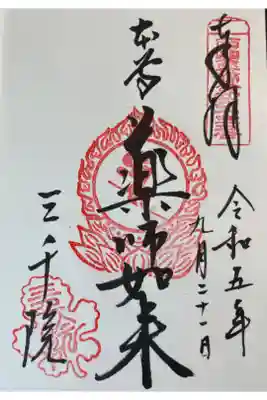 奉拝
令和五年
九月二十一日
本尊
薬師如来
三千院